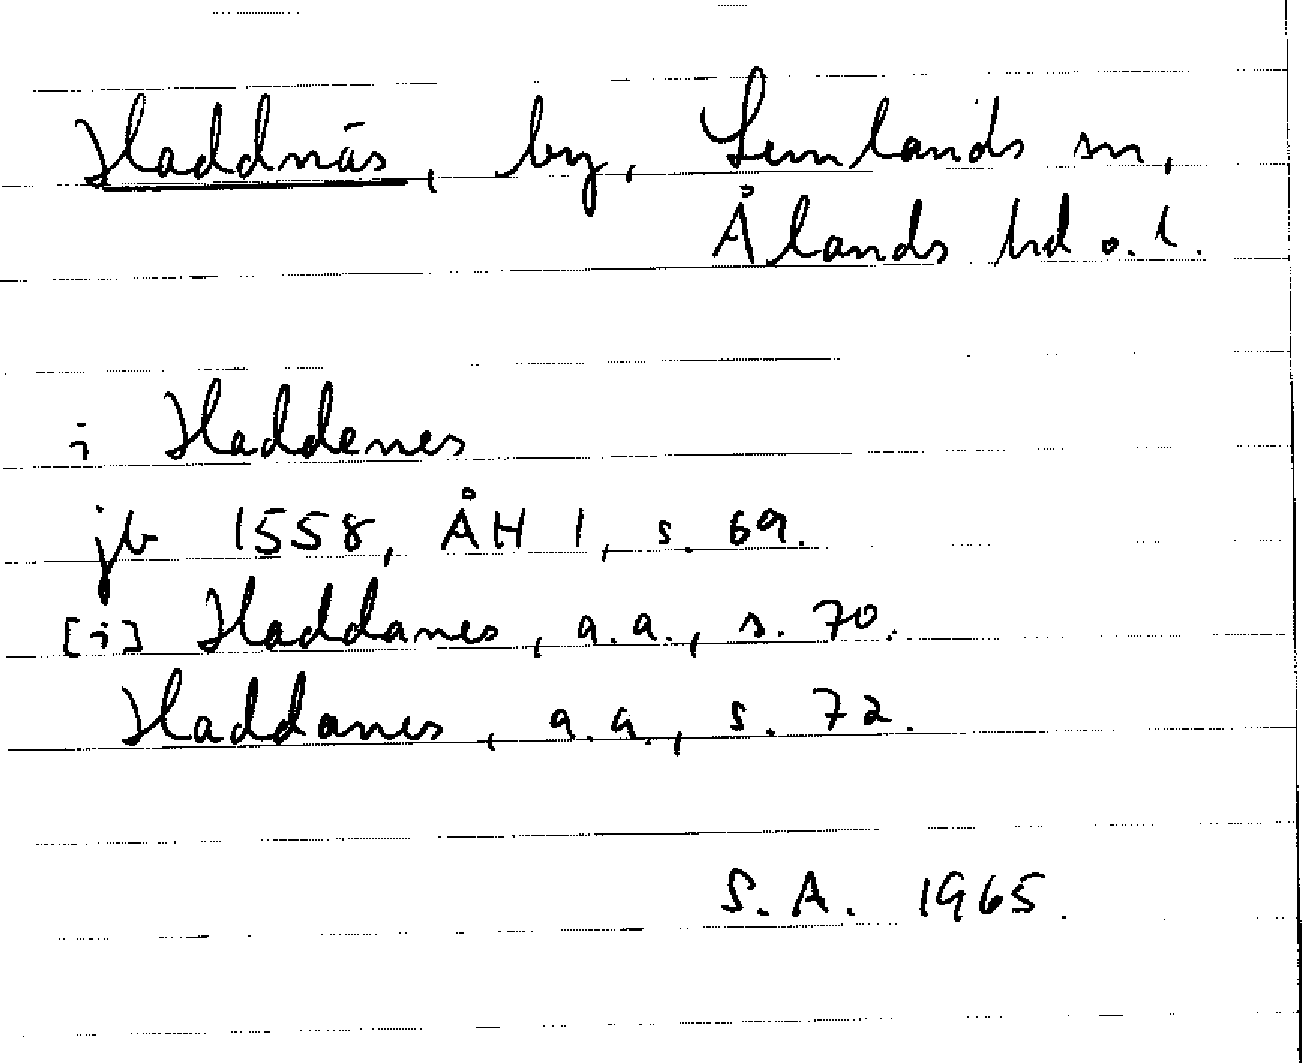 Haddnäs, by, Lemlands sn,
Ålands hd o. l.
i Haddenes
jb 1558, ÅH 1, s. 69.
[i] Haddanes, a.a., s. 70.
Haddanes, a.a., s. 72.
S.A. 1965.